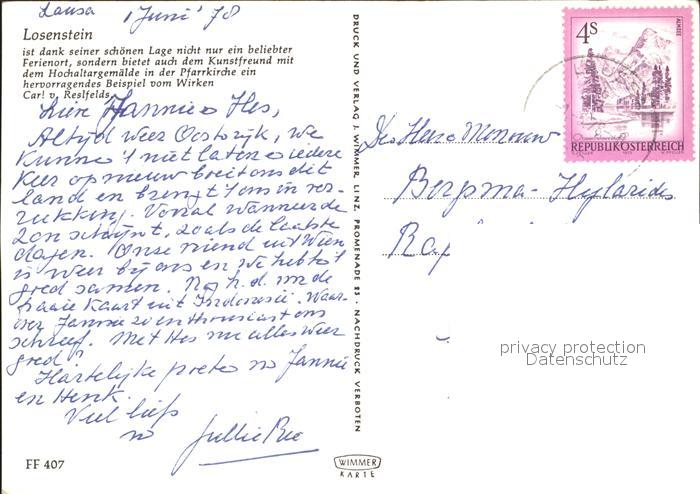 Lausa 1 Juni '78
Losenstein
ist dank seiner schönen Lage nicht nur ein beliebter
Ferienort, sondern bietet auch dem Kunstfreund mit
dem Hochaltargemälde in der Pfarrkirche ein
hervorragendes Beispiel vom Wirken
Carl v. Reslfelds
Lieve Jannie Hes,
Altijd weer Oostrijk, we
kunne 't niet laten iedere
keer opnieuw breit ons dit
land en brengt ons in ver-
rukking. Vooral wanneer de
zon schijnt, zoals de laatste
dagen. Onze vriend uit Wien
is weer bij ons en we hebb 't
goed samen. n.d.
fraaie kaart uit Indonesië. Waar-
over Jannie zo enthousiast ons
schreef. Met Hes me alles weer
goed?
Hartelijke groeten Jannie
en Henk.
Veel liefs
DRUCK UND VERLAG J. WIMMER, LINZ, PROMENADE 23 · NACHDRUCK VERBOTEN
4S
ALMSEE
REPUBLIK ÖSTERREICH
De Heer Mevrouw
Bergsma-Hylarides
privacy protection
Datenschutz
FF 407
WIMMER
KARTE